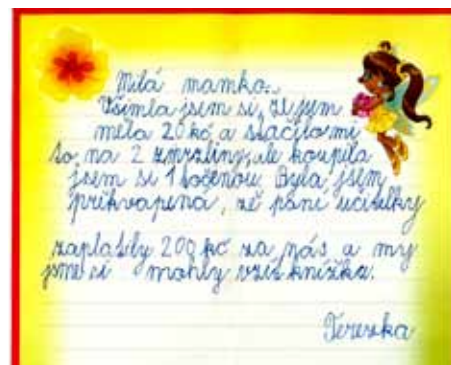 Milá mamko.
Všimla jsem si, že jsem
měla 20 kč a stačilo mi
to, na 2 zmrzliny, ale koupila
jsem si 1 točenou. Byla jsem
překvapená, že paní učitelky
zaplatily 200 kč za nás a my
jsme si mohly vzít knížku.
Terezka